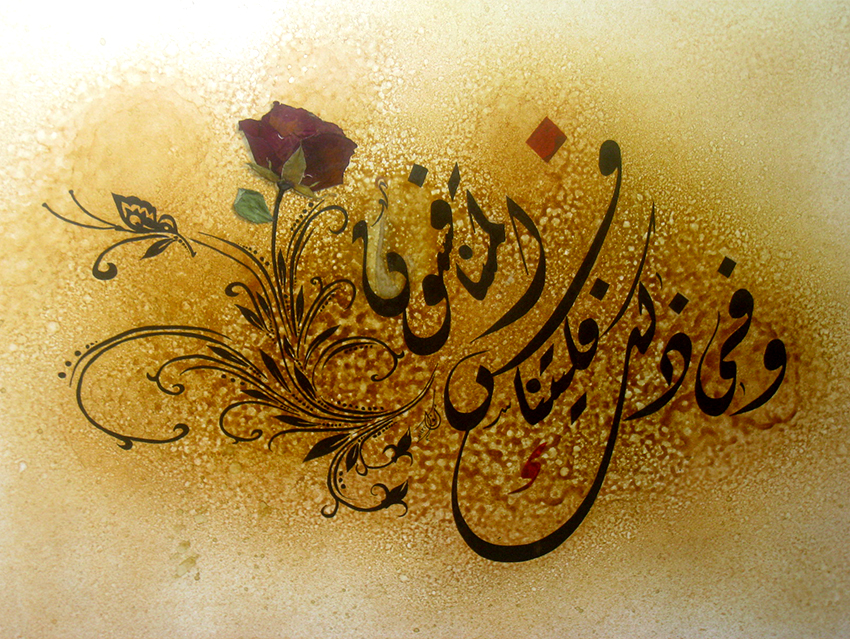 وفي ذلك فليتنافس المتنافسون